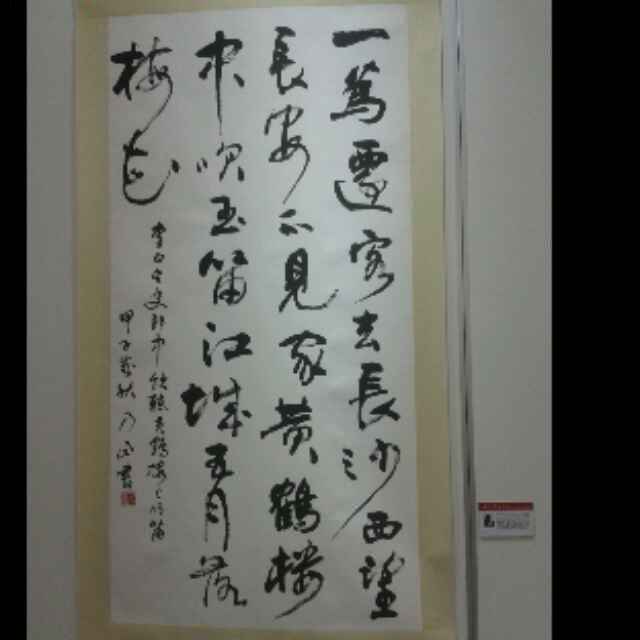 一為遷客去長沙西望
長安不見家黄鶴楼
中吹玉笛江城五月落
梅花
李白与史郎中欽聽黄鶴楼上吹笛
甲子秋乃正